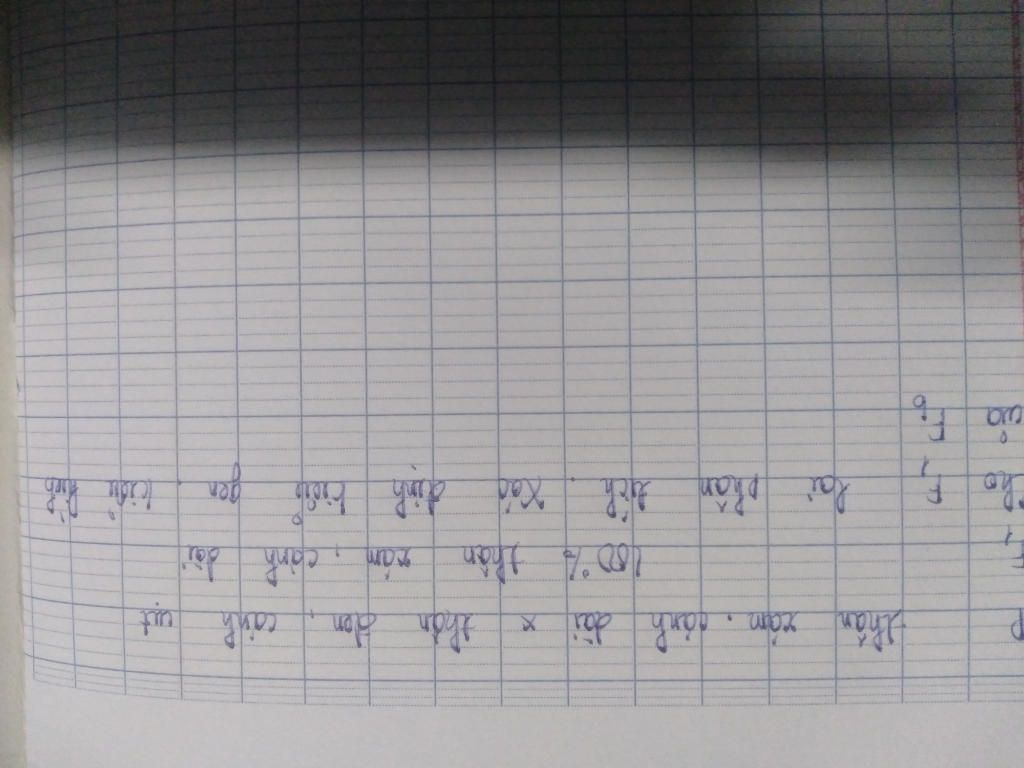 P thân xám, cánh dài x thân đen, cánh cụt
F1 100% thân xám, cánh dài
Cho F1 lai phân tích. Xác định kiểu gen, kiểu hình
của Fb